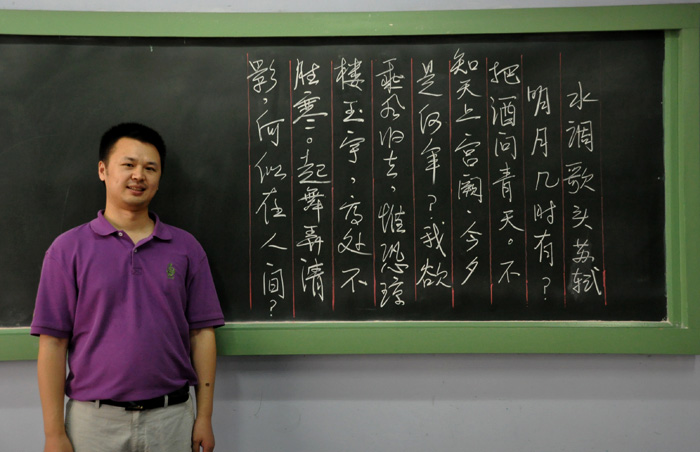 水调歌头 苏轼
明月几时有?
把酒问青天。不
知天上宫阙,今夕
是何年?我欲
乘风归去,惟恐琼
楼玉宇,高处不
胜寒。起舞弄清
影,何似在人间?